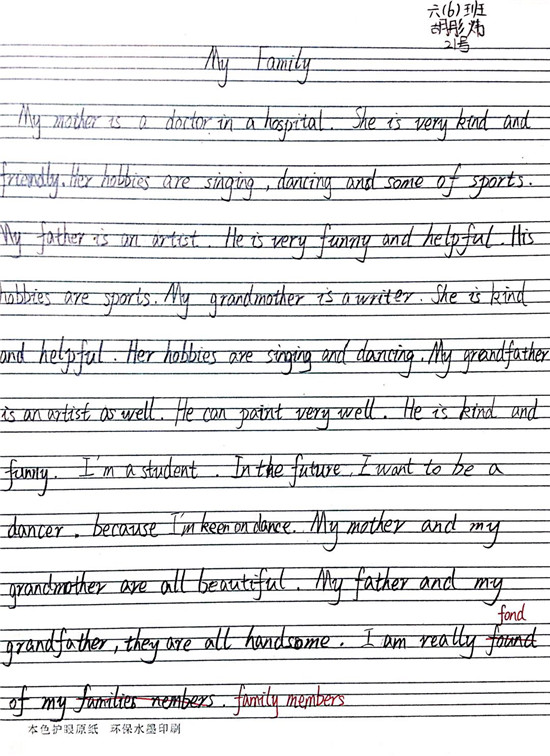 六(6)班
胡彤炜
21号
My Family
My mother is a doctor in a hospital. She is very kind and
friendly. Her hobbies are singing, dancing and some of sports.
My father is an artist. He is very funny and helpful. His
hobbies are sports. My grandmother is a writer. She is kind
and helpful. Her hobbies are singing and dancing. My grandfather
is an artist as well. He can paint very well. He is kind and
funny. I'm a student. In the future, I want to be a
dancer, because I'm keen on dance. My mother and my
grandmother are all beautiful. My father and my
fond
grandfather, they are all handsome. I am really found
of my families nembers. family members
本色护眼原纸 环保水墨印刷